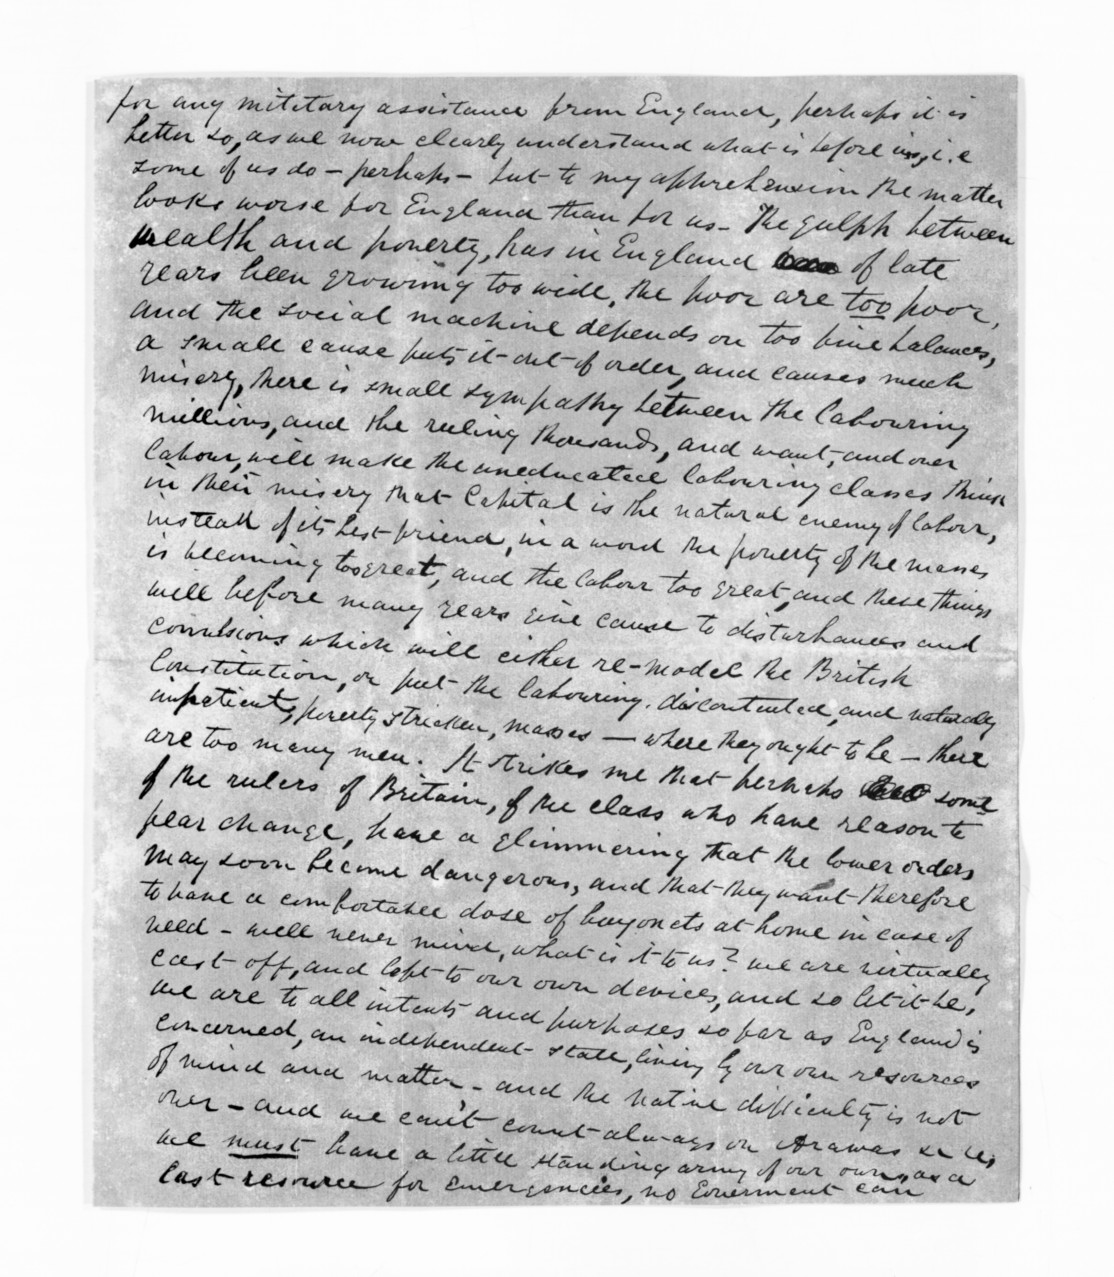 for any military assistance from England, perhaps it is
better so, as we now clearly understand what is before us, i.e
some of us do – perhaps – but to my apprehension the matter
looks worse for England than for us – The gulph between
wealth and poverty, has in England of late
years been growing too wide, the poor are too poor,
and the social machine depends on too fine balances,
a small cause puts it out of order, and causes much
misery, there is small sympathy between the labouring
millions, and the ruling thousands, and want, and over
labour, will make the uneducated labouring classes think
in their misery that Capital is the natural enemy of labour,
instead of its best friend, in a word the poverty of the masses
is becoming too great, and the labour too great, and these things
will before many years give cause to disturbances and
convulsions which will either re-model the British
Constitution, or put the labouring, discontented, and naturally
impatient, poverty stricken, masses – where they ought to be – there
are too many men. It strikes me that perhaps some
of the rulers of Britain, of the class who have reason to
fear change, have a glimmering that the lower orders
may soon become dangerous, and that they want therefore
to have a comfortable dose of bayonets at home in case of
need – well never mind, what is it to us? we are virtually
cast off, and left to our own devices, and so let it be,
we are to all intents and purposes so far as England is
concerned, an independent state, living by our own resources
of mind and matter – and the native difficulty is not
over – and we can't count always on Arawas
we must have a little standing army of our own, as a
last resource for emergencies, no Government can